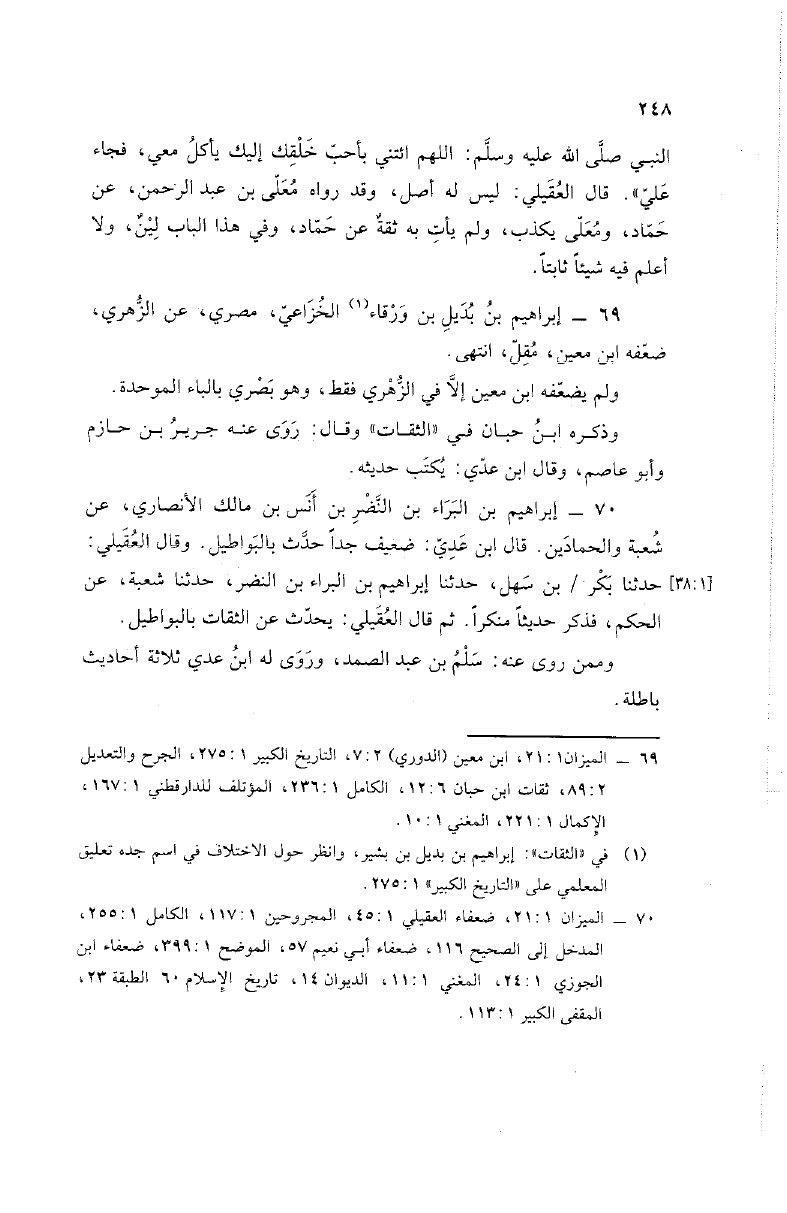 ٢٤٨
النبي صلَّى الله عليه وسلَّم: اللهم ائتني بأحبّ خَلْقِك إليك يأكلُ معي، فجاء
عَليّ». قال العُقَيلي: ليس له أصل، وقد رواه مُعَلّى بن عبد الرحمن، عن
حَمّاد، ومُعَلّى يكذب، ولم يأتِ به ثقةٌ عن حَمّاد، وفي هذا الباب لِيْنٌ، ولا
أعلم فيه شيئاً ثابتاً.
٦٩ — إبراهيم بنُ بُدَيلِ بن وَرْقاء(١) الخُزَاعيّ، مصري، عن الزُّهري،
ضعّفه ابن معين، مُقِلّ، انتهى.
ولم يضعّفه ابن معين إلاَّ في الزُّهْري فقط، وهو بَصْري بالباء الموحدة.
وذكره ابنُ حبان في «الثقات» وقال: رَوَى عنه جريرُ بن حازم
وأبو عاصم، وقال ابن عدّي: يُكتَب حديثه.
٧٠ — إبراهيم بن البَرَاء بن النَّضْرِ بن أَنَس بن مالك الأنصاري، عن
شُعبة والحمادَين. قال ابن عَدِيّ: ضعيف جداً حدَّث بالبَواطيل. وقال العُقَيلي:
[٣٨:١] حدثنا بَكْر / بن سَهل، حدثنا إبراهيم بن البراء بن النضر، حدثنا شعبة، عن
الحكم، فذكر حديثاً منكراً. ثم قال العُقَيلي: يحدّث عن الثقات بالبواطيل.
وممن روى عنه: سَلْمُ بن عبد الصمد، ورَوَى له ابنُ عدي ثلاثة أحاديث
باطلة.
٦٩ — الميزان ٢١:١، ابن معين (الدوري) ٧:٢، التاريخ الكبير ٢٧٥:١، الجرح والتعديل
٨٩:٢، ثقات ابن حبان ١٢:٦، الكامل ٢٣٦:١، المؤتلف للدارقطني ١٦٧:١،
الإكمال ٢٢١:١، المغني ١٠:١.
(١) في «الثقات»: إبراهيم بن بديل بن بشير، وانظر حول الاختلاف في اسم جده تعليق
المعلمي على «التاريخ الكبير» ٢٧٥:١.
٧٠ — الميزان ٢١:١، ضعفاء العقيلي ٤٥:١، المجروحين ١١٧:١، الكامل ٢٥٥:١،
المدخل إلى الصحيح ١١٦، ضعفاء أبي نعيم ٥٧، الموضح ٣٩٩:١، ضعفاء ابن
الجوزي ٢٤:١، المغني ١١:١، الديوان ١٤، تاريخ الإسلام ٦٠ الطبقة ٢٣،
المقفى الكبير ١١٣:١.